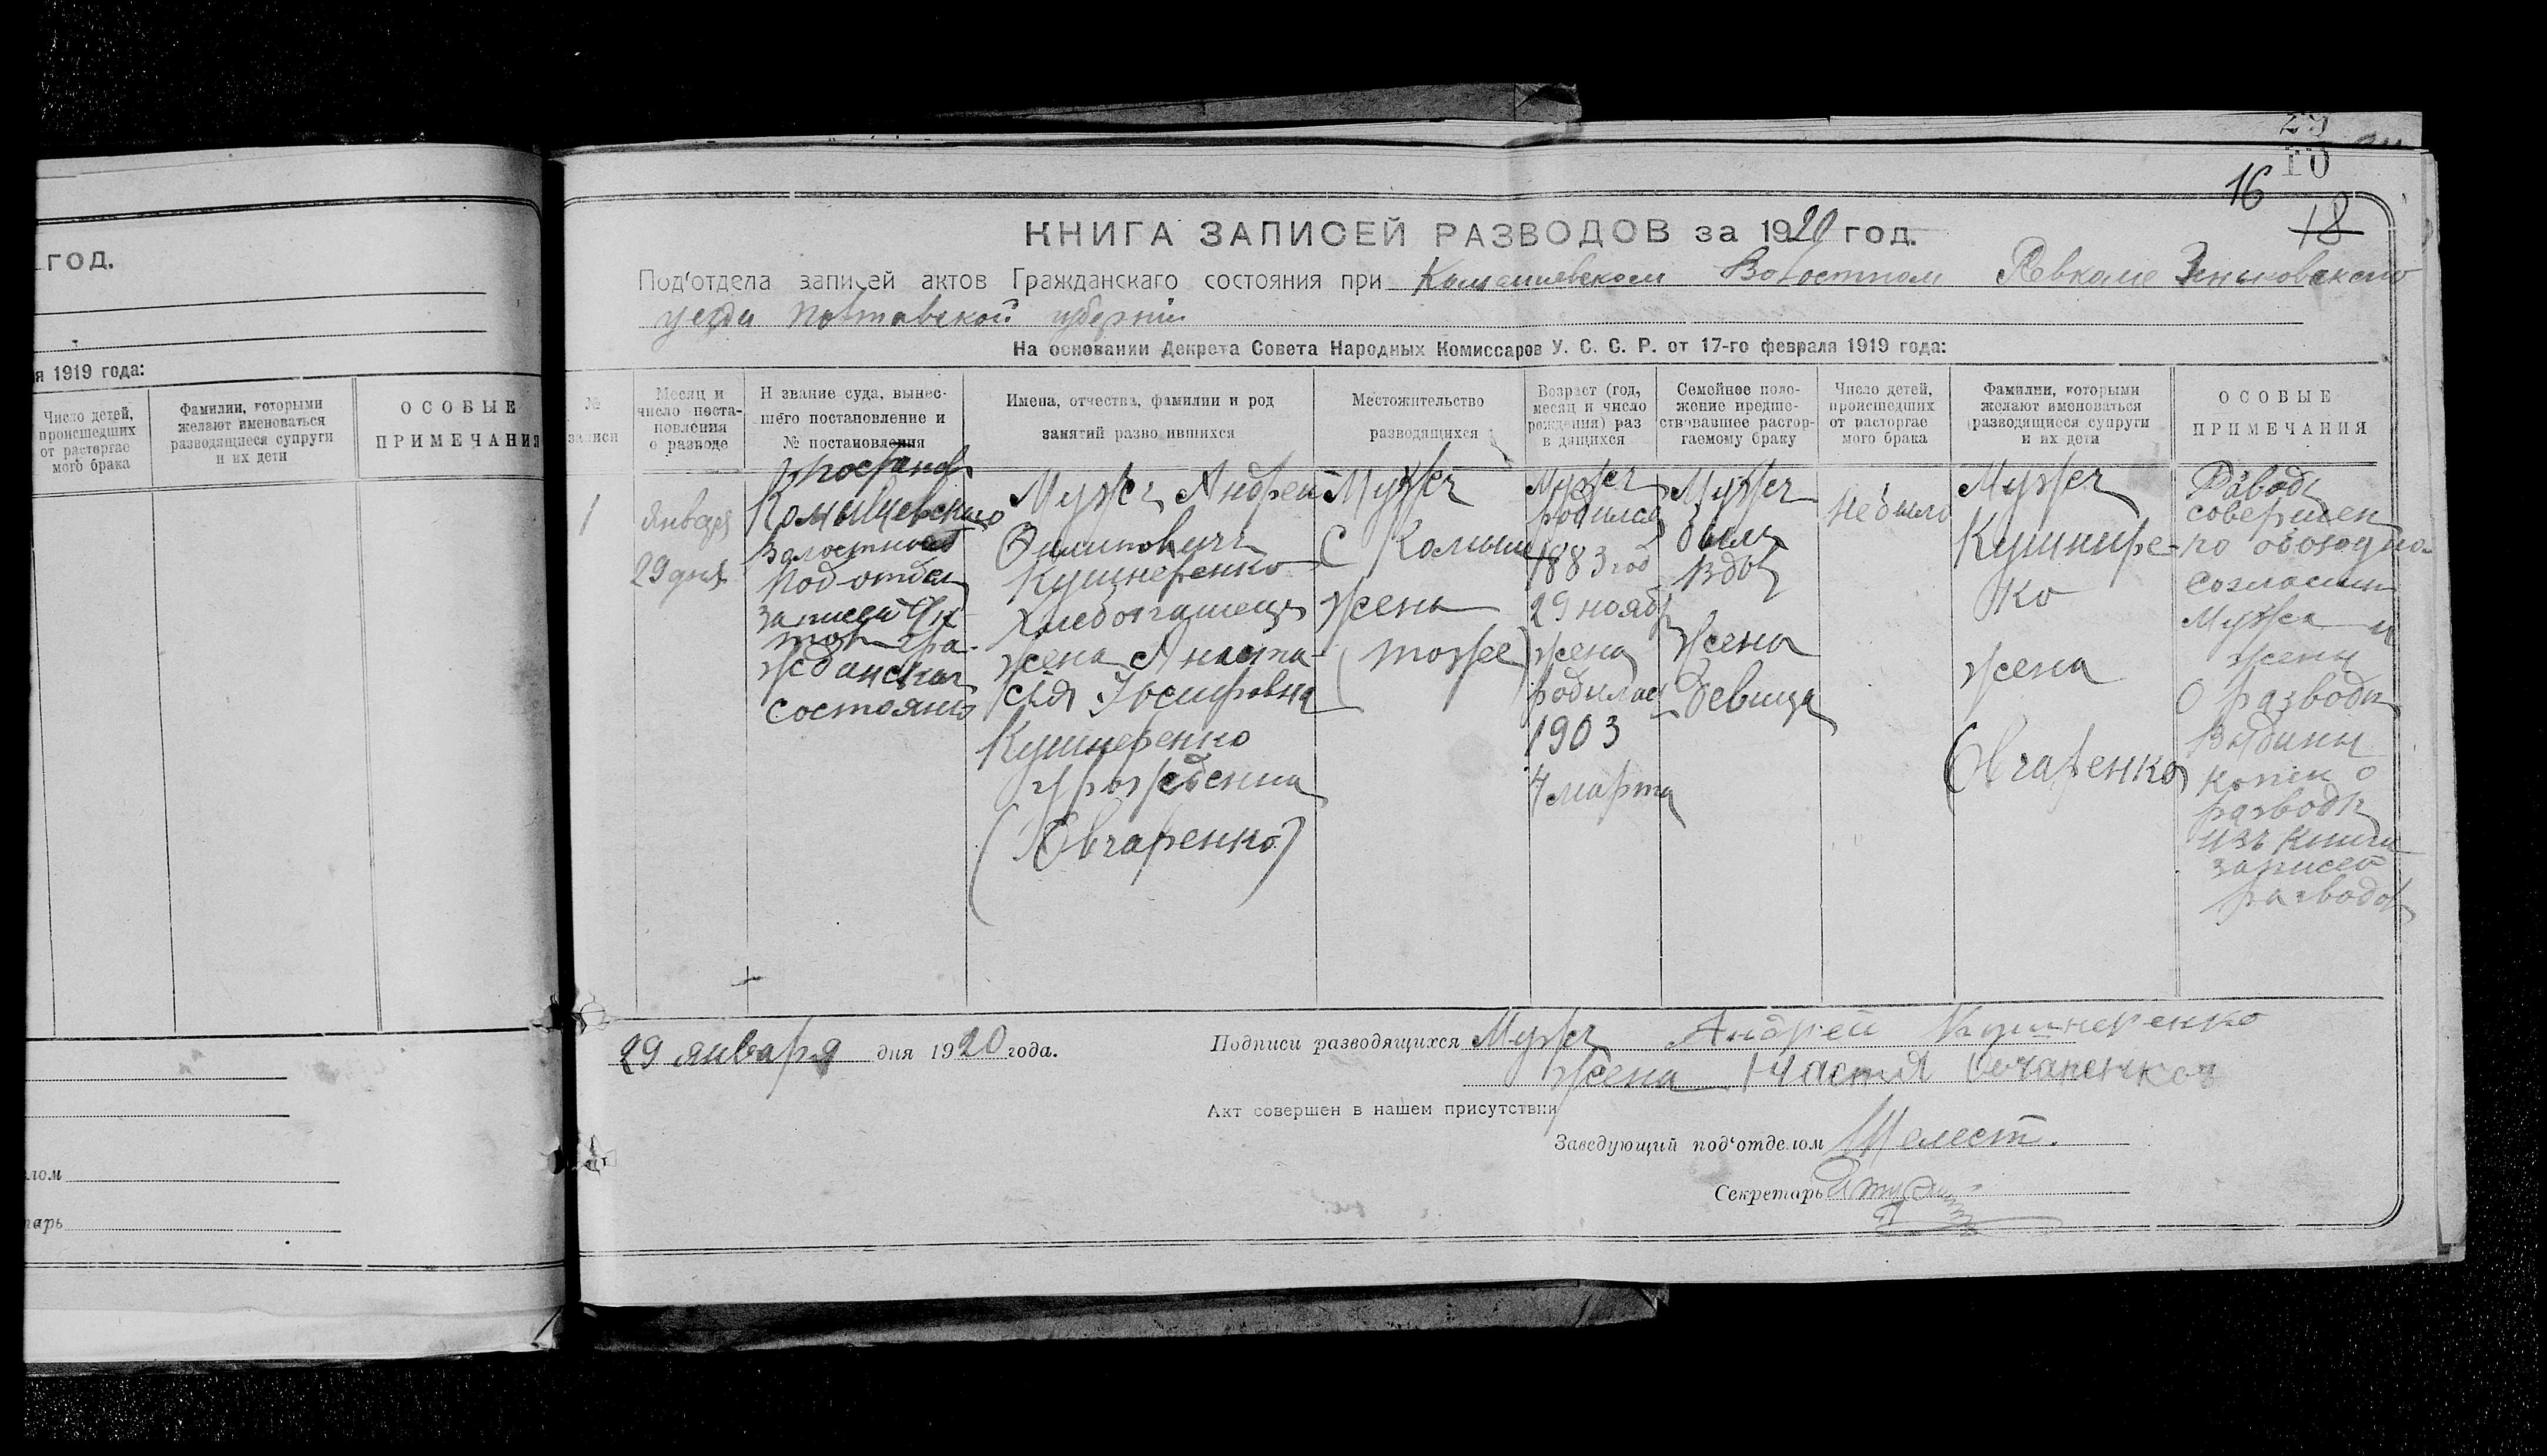 год.
я 1919 года:
Число детей,
происшедших
от расторгае
мого брака
Фамилии, которыми
желают именоваться
разводящиеся супруги
и их дети
ОСОБЫЕ
ПРИМЕЧАНИЯ
лом
тарь
16
18
КНИГА ЗАПИСЕЙ РАЗВОДОВ за 1920 год.
Под'отдела записей актов Гражданскаго состояния при Комышевском Волостном Ревкоме Зеньковского
уезда Полтавской губернии
На основании Декрета Совета Народных Комиссаров У. С. С. Р. от 17-го февраля 1919 года:
№
записи
Месяц и
число поста-
новления
о разводе
Н звание суда, вынес-
шего постановление и
№ постановления
Имена, отчества, фамилии и род
занятий разво ившихся
Местожительство
разводящихся
Возраст (год,
месяц и число
рождения) раз
в дящихся
Семейное поло-
жение предше-
ствовавшее растор-
гаемому браку
Число детей,
происшедших
от расторгае
мого брака
Фамилии, которыми
желают именоваться
разводящиеся супруги
и их дети
ОСОБЫЕ
ПРИМЕЧАНИЯ
1
января
29 дня
Постанов
Комышевскаго
Волостного
Под-отдел
записей Ак
тов гра-
жданскаг
состояния
Мужъ Андрей
Кушнеренко
Хлебопашец
жена Анаста-
сія Іосифовна
Кушнеренко
урожденна
(Овчаренко)
Мужъ
С Комыш
жена
(тоже)
Мужъ
родился
1883 год
29 ноябр
жена
родилас
1903
4 марта
Мужъ
былъ
вдов
Жена
Девица
не было
Мужъ
Кушнире-
ко
жена
Овчаренко
Развод
совершен
по обоюдно
согласию
Мужа и
жены
О разводе
Выданы
копіи о
разводе
изъ Книги
записей
разводов
29 января дня 1920 года.
Подписи разводящихся Мужъ Андрей Кушнеренко
Жена Настя Овчаренкова
Акт совершен в нашем присутствии
Заведующий под'отделом Шелест.
Секретарь